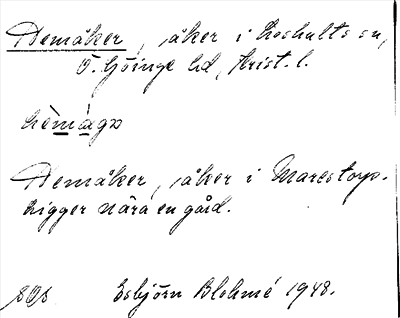 Hemåker, åker i Loshults sn,
Ö. Göinge hd, Krist. l.
Hemåker, åker i Marestorp.
Ligger nära en gård.
Esbjörn Blohmé 1948.